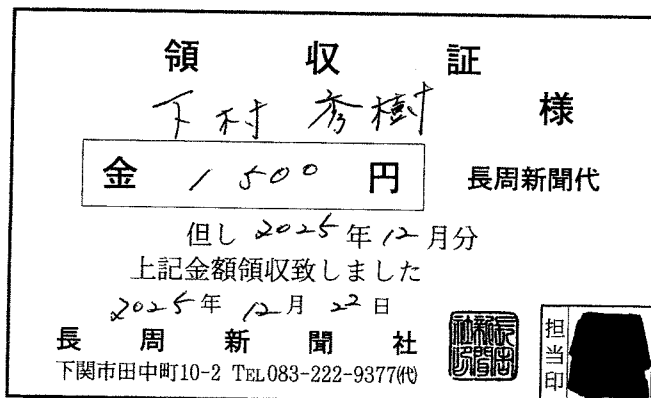 領収証
下村 秀樹 様
金 1500 円 長周新聞代
但し 2025年12月分
上記金額領収致しました
2025年 12月 22日
長周新聞社
下関市田中町10-2 TEL083-222-9377㈹
長周新聞社印
担当印